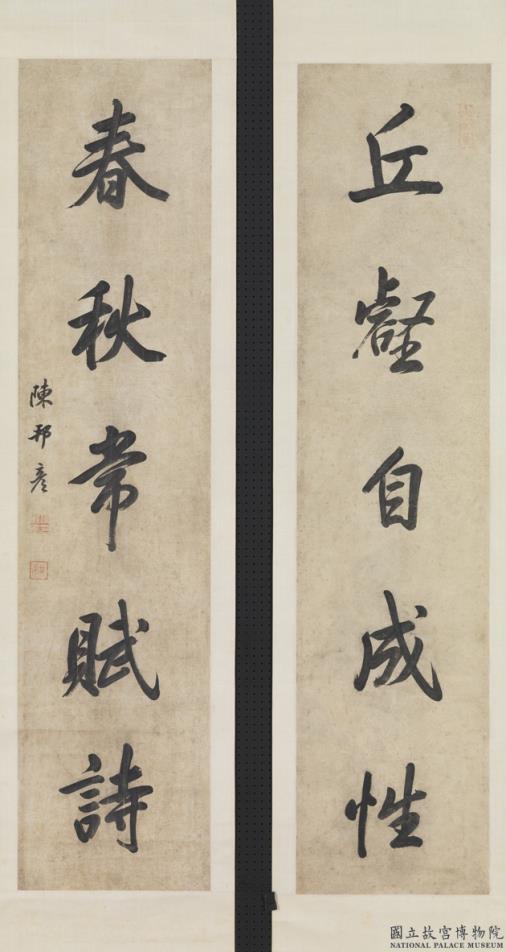 丘壑自成性
春秋常賦詩
陳邦彥
國立故宮博物院
NATIONAL PALACE MUSEUM